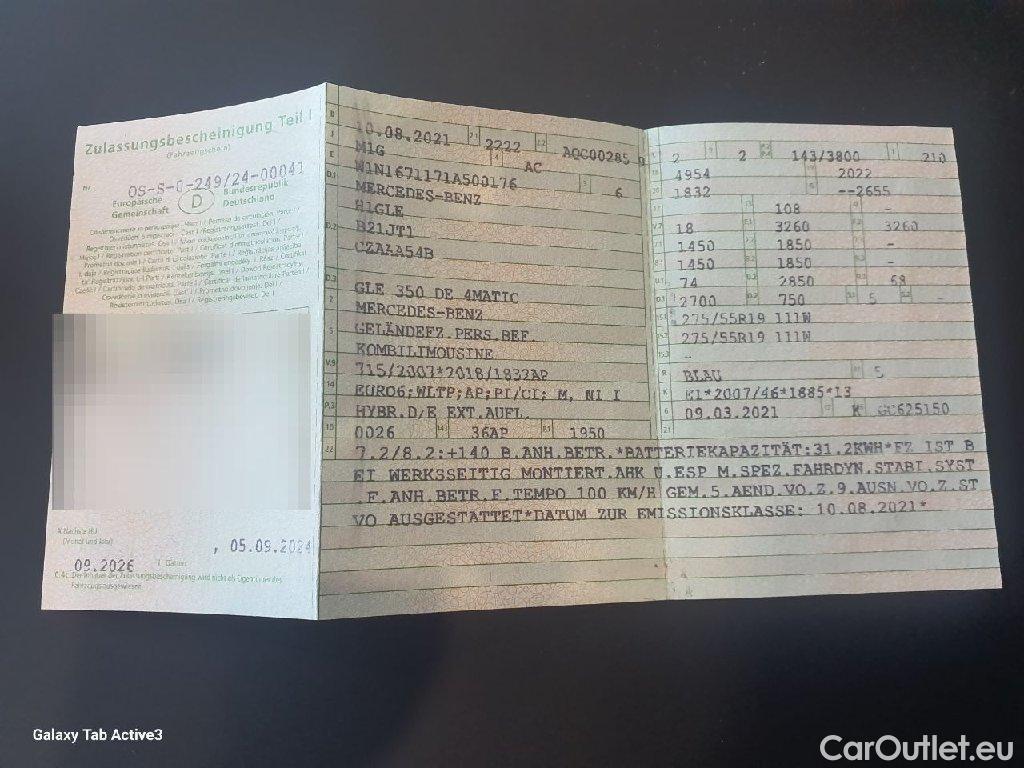 Zulassungsbescheinigung Teil I
(Fahrzeugschein)
Nr. OS-S-0-249/24-00041
Europäische Gemeinschaft
D
Bundesrepublik Deutschland
, 05.09.2024
09.2026
10.08.2021 2222 AQC00285 9
M1G AC
W1N1671171A500176 6
MERCEDES-BENZ
H1GLE
B21JT1
CZAAA54B
GLE 350 DE 4MATIC
MERCEDES-BENZ
GELÄNDEFZ.PERS.BEF.
KOMBILIMOUSINE
715/2007*2018/1832AP
EURO6;WLTP;AP;PI/CI; M, N1 I
HYBR.D/E EXT.AUFL.
0026 36AP 1950
2 2 143/3800 210
4954 2022
1832 --2655
108 -
18 3260 3260
1450 1850 -
1450 1850 -
74 2850 68
2700 750 5 -
275/55R19 111W
275/55R19 111W
-
BLAU 5
E1*2007/46*1885*13
09.03.2021 K GC625150
7.2/8.2:+140 B.ANH.BETR.*BATTERIEKAPAZITÄT:31.2KWH*FZ IST B
EI WERKSSEITIG MONTIERT.AHK U.ESP M.SPEZ.FAHRDYN.STABI.SYST
.F.ANH.BETR.F.TEMPO 100 KM/H GEM.5.AEND.VO.Z.9.AUSN.VO.Z.ST
VO AUSGESTATTET*DATUM ZUR EMISSIONSKLASSE: 10.08.2021*
Galaxy Tab Active3
CarOutlet.eu